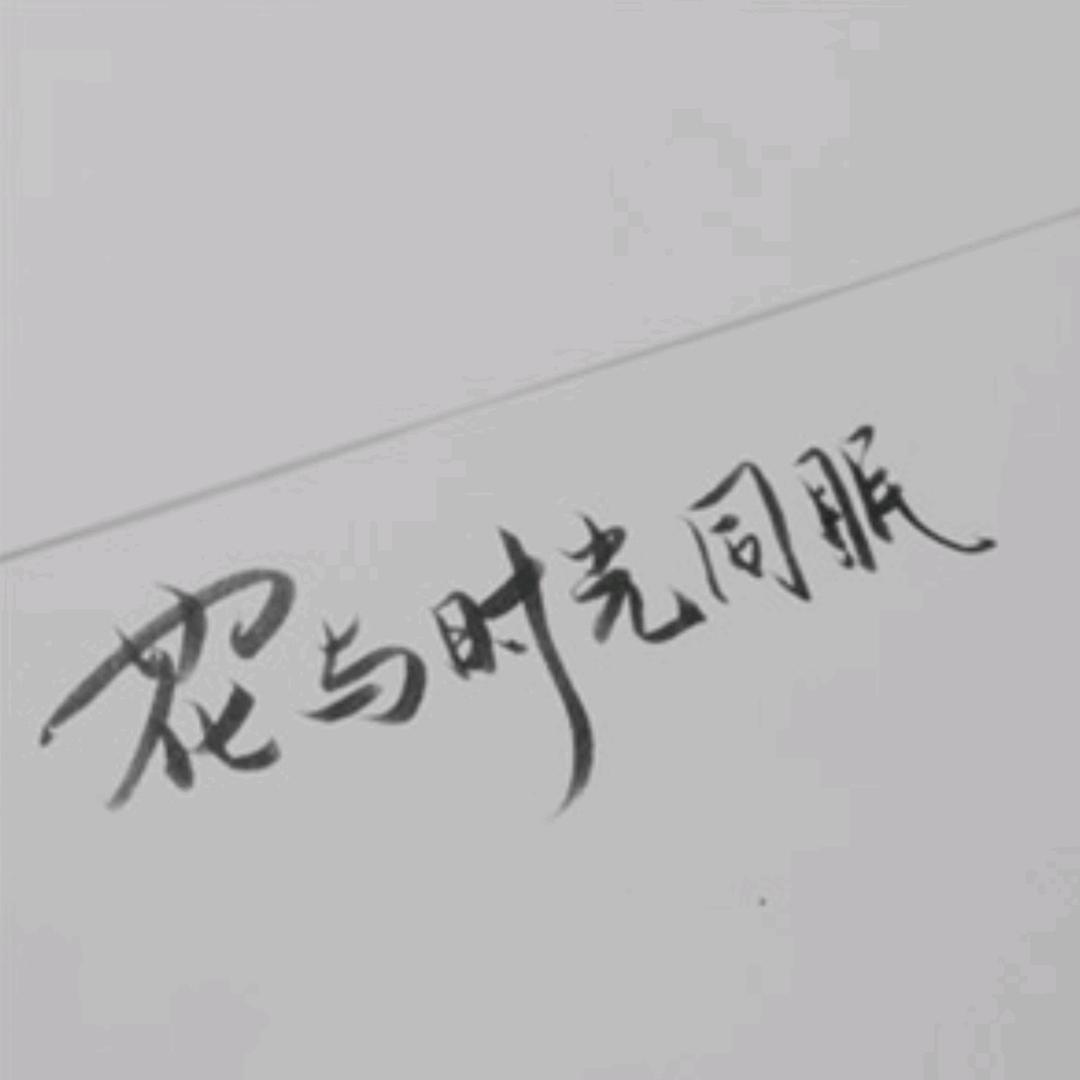 花与时光同眠